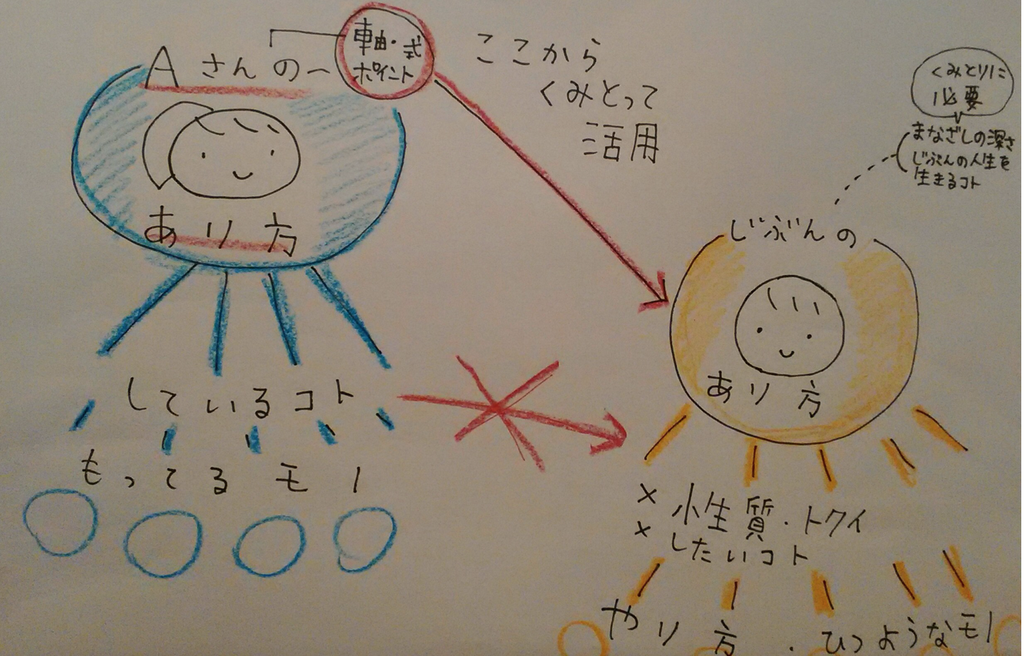 Aさんの〜
軸・式
ポイント
あり方
ここから
くみとって
活用
くみとりに
必要
まなざしの深さ
じぶんの人生を
生きるコト
じぶんの
あり方
しているコト
もってるモノ
× 性質・トクイ
× したいコト
やり方・ひつようなモノ